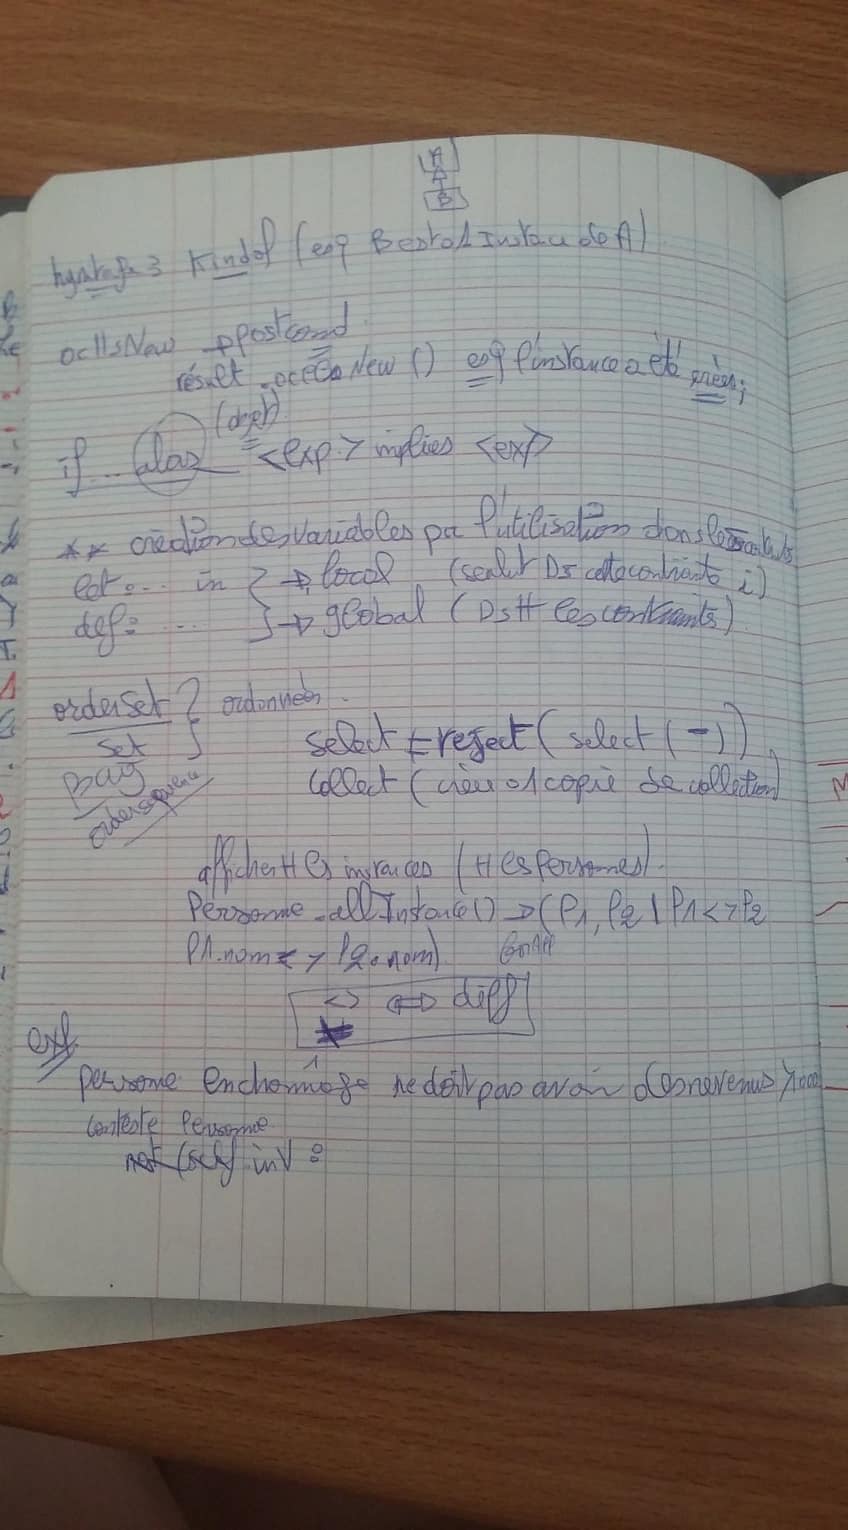 A
B
Kindof (esq B est od Instau de A)
oclIsNew → postcond
result.oclIsNew () esq l'instance a été créer;
(objet)
if... alors <exp> implies <exp>
** création des variables pr l'utilisation dans
let... in } → local (seult Ds cette contrainte i)
def: ... } → global (Ds tt les contraints)
orderSet } ordonnées.
Set
select = reject (select (-))
Bag
collect (crèer 01 copie de collection)
ordersequence
afficher tt les instances (tt les Personnes).
Personne.allInstance() → (P1, P2 | P1 <> P2
P1.nom <> P2.nom) forAll
<> ⇔ diff
ex1
personne en chomage ne doit pas avoir des revenus >
Contexte Personne
not (self inv :